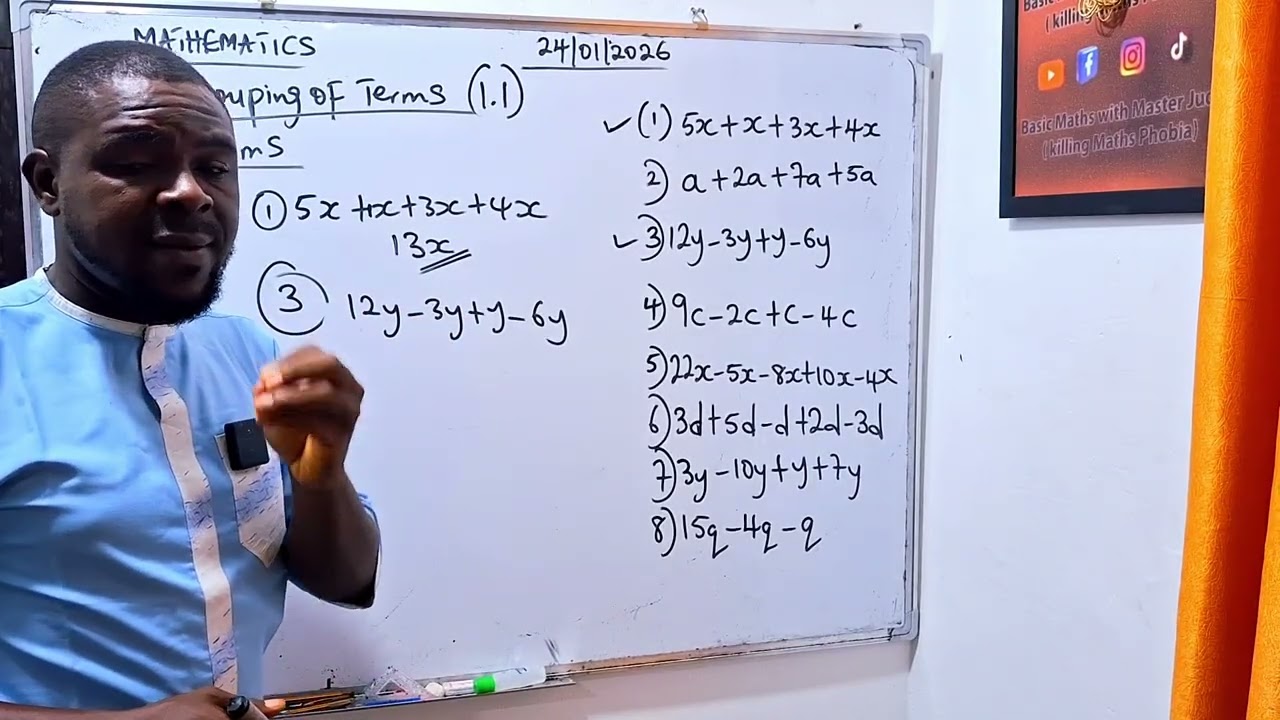 MATHEMATICS
24/01/2026
ouping of Terms (1.1)
ms
① 5x + 1x + 3x + 4x
13x
③ 12y - 3y + y - 6y
✓ (1) 5x + x + 3x + 4x
2) a + 2a + 7a + 5a
✓ 3) 12y - 3y + y - 6y
4) 9c - 2c + c - 4c
5) 22x - 5x - 8x + 10x - 4x
6) 3d + 5d - d + 2d - 3d
7) 3y - 10y + y + 7y
8) 15q - 4q - q
Basic Maths with Master Jud
(killing Maths Phobia)